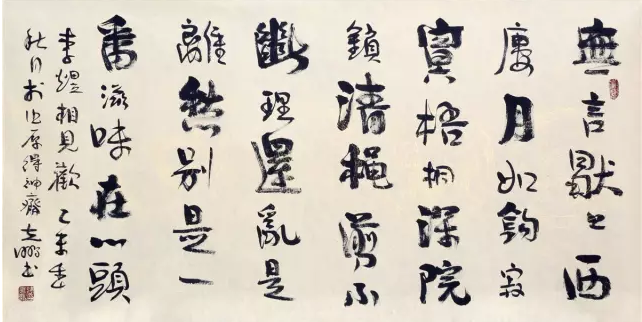 無言獨上西
廔月如鉤寂
寞梧桐深院
鎖清龝剪不
斷理還亂是
離愁別是一
番滋味在心頭
李煜相見歡乙未季
秋月於厚得神齋書